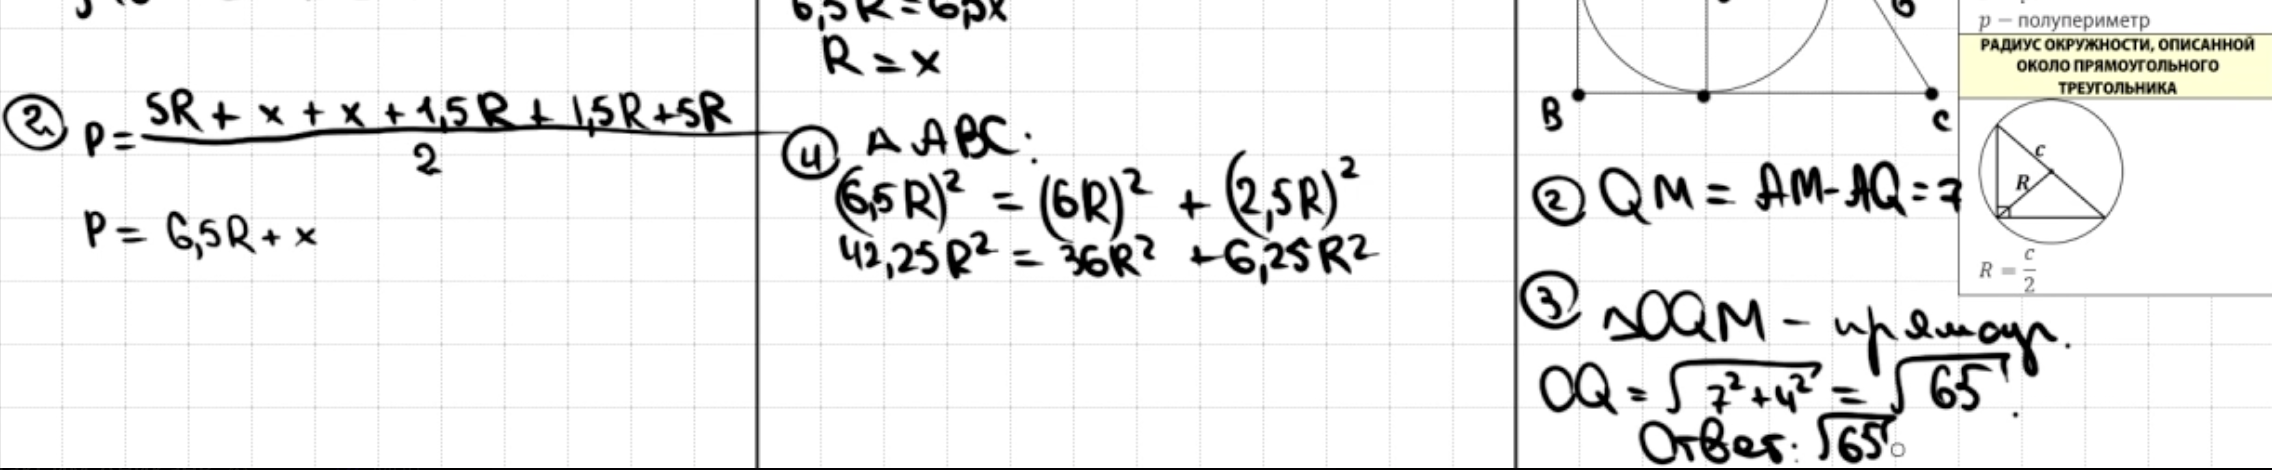 ② P = (5R + x + x + 1,5R + 1,5R + 5R) / 2
P = 6,5R + x
R = x
④ Δ ABC:
(6,5R)² = (6R)² + (2,5R)²
42,25R² = 36R² + 6,25R²
B
C
② QM = AM - AQ = 7
③ ΔOQM – прямоуг.
OQ = √(7² + 4²) = √65.
Ответ: √65
p — полупериметр
РАДИУС ОКРУЖНОСТИ, ОПИСАННОЙ
ОКОЛО ПРЯМОУГОЛЬНОГО
ТРЕУГОЛЬНИКА
c
R
R = c/2